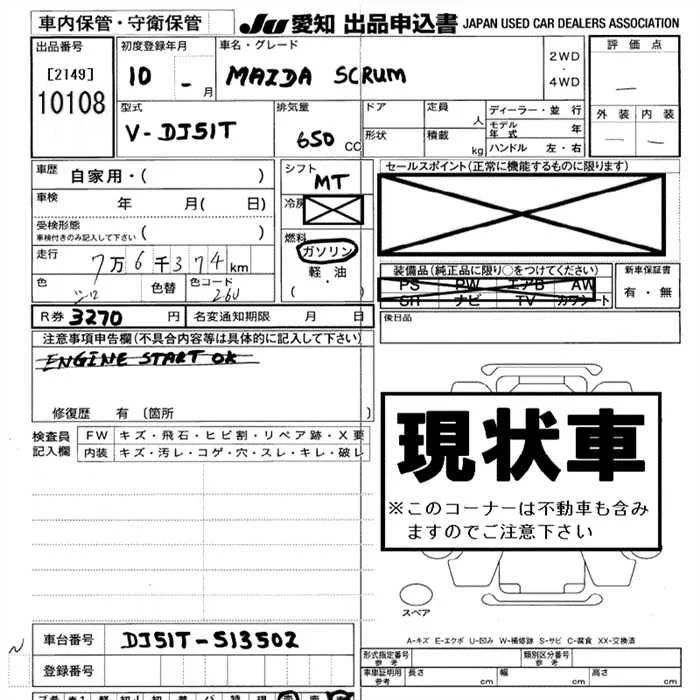 車内保管・守衛保管
JU 愛知 出品申込書 JAPAN USED CAR DEALERS ASSOCIATION
出品番号
[2149]
10108
初度登録年月
10 - 月
車名・グレード
MAZDA SCRUM
2WD
・
4WD
評価点
—
外装 内装
— —
型式
V-DJ51T
排気量
650 CC
ドア
定員
人
形状
積載
kg
ディーラー・並行
モデル年式 年
ハンドル 左・右
車歴
自家用・( )
車検 年 月( 日)
受検形態
車検付きのみ記入して下さい ( )
走行 7万6千374km
色 シロ 色替 色コード 26U
シフト
MT
冷房
燃料
ガソリン
軽・油
( )
セールスポイント(正常に機能するものに限ります)
装備品(純正品に限り○をつけてください)
PS PW エアB AW
SR ナビ TV カワシート
新車保証書
有・無
後日品
R券 3270 円 名変通知期限 月 日
注意事項申告欄(不具合内容等は具体的に記入して下さい)
ENGINE START OK
修復歴 有(箇所 )
検査員記入欄
FW キズ・飛石・ヒビ割・リペア跡・X要
内装 キズ・汚レ・コゲ・穴・スレ・キレ・破レ
現状車
※このコーナーは不動車も含み
ますのでご注意下さい
スペア
A-キズ E-エクボ U-凹み W-補修跡 S-サビ C-腐食 XX-交換済
車台番号 DJ51T-513502
登録番号
型式指定番号
参考
類別区分番号
参考
車庫証明用
参考
長さ cm 幅 cm 高さ cm